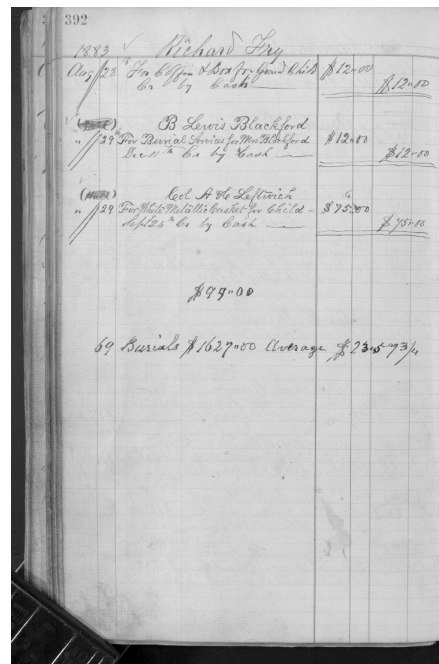 392
1883 Richard Fry
Aug 28th For Coffin & Box for Grand Child $12.00
Cr by Cash $12.00
B Lewis Blackford
" 29th For Burial Services for Mrs Blackford $12.00
Dec 11th Cr by Cash $12.00
Col A H Leftwich
" 29 For White Metallic Casket for Child $75.00
Sept 24th Cr by Cash $75.00
$99.00
69 Burials $1627.00 Average $23.57 3/4